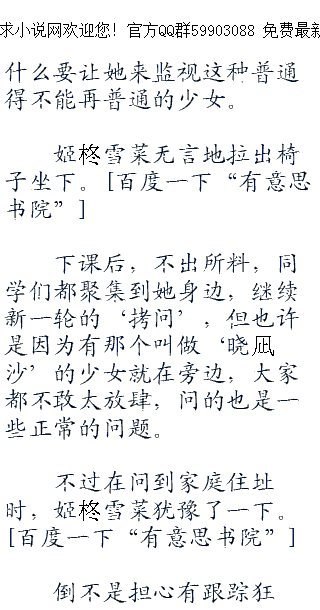 求小说网欢迎您！官方QQ群59903088 免费最新
什么要让她来监视这种普通
得不能再普通的少女。
姬柊雪菜无言地拉出椅
子坐下。[百度一下“有意思
书院”]
下课后，不出所料，同
学们都聚集到她身边，继续
新一轮的‘拷问’，但也许
是因为有那个叫做‘晓凪
沙’的少女就在旁边，大家
都不敢太放肆，问的也是一
些正常的问题。
不过在问到家庭住址
时，姬柊雪菜犹豫了一下。
[百度一下“有意思书院”]
倒不是担心有跟踪狂